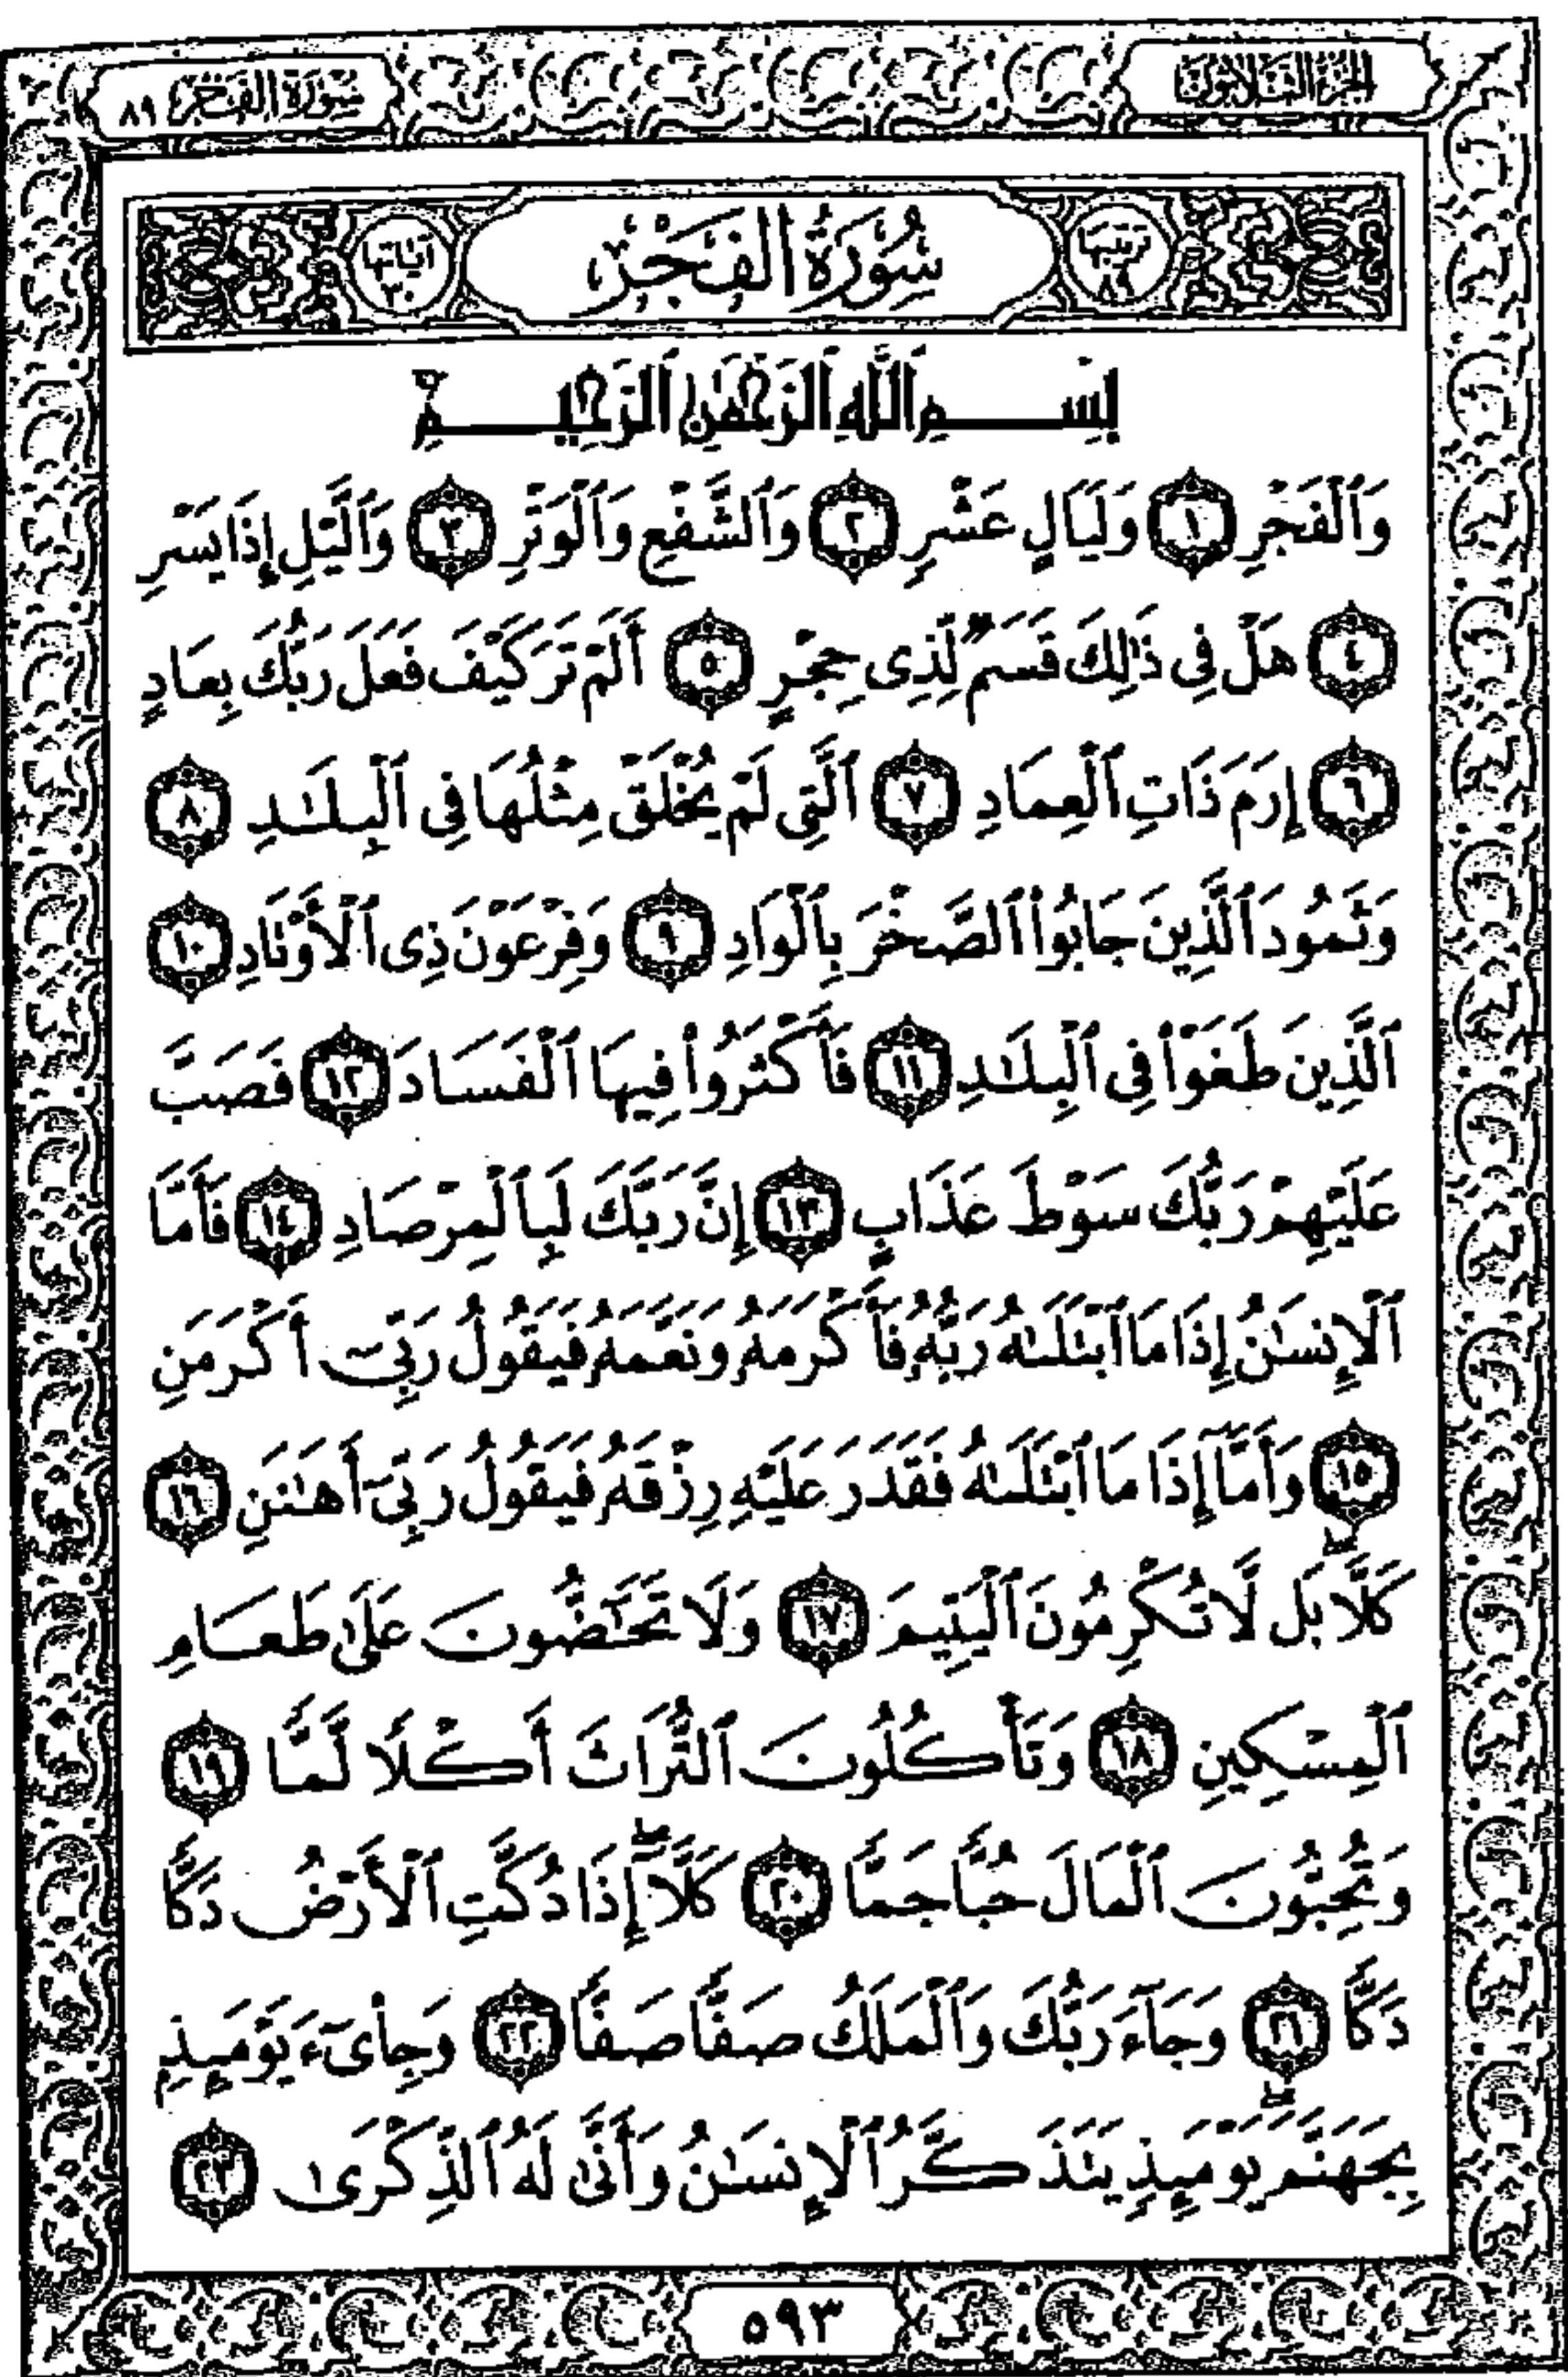 الجزء الثلاثون
سورة الفجر ٨٩
ترتيبها ٨٩
سُورَةُ الفَجْرِ
آياتها ٣٠
بِسْمِ ٱللَّهِ ٱلرَّحْمَٰنِ ٱلرَّحِيمِ
وَٱلْفَجْرِ ١ وَلَيَالٍ عَشْرٍ ٢ وَٱلشَّفْعِ وَٱلْوَتْرِ ٣ وَٱلَّيْلِ إِذَا يَسْرِ
٤ هَلْ فِى ذَٰلِكَ قَسَمٌ لِّذِى حِجْرٍ ٥ أَلَمْ تَرَ كَيْفَ فَعَلَ رَبُّكَ بِعَادٍ
٦ إِرَمَ ذَاتِ ٱلْعِمَادِ ٧ ٱلَّتِى لَمْ يُخْلَقْ مِثْلُهَا فِى ٱلْبِلَٰدِ ٨
وَثَمُودَ ٱلَّذِينَ جَابُوا۟ ٱلصَّخْرَ بِٱلْوَادِ ٩ وَفِرْعَوْنَ ذِى ٱلْأَوْنَادِ ١٠
ٱلَّذِينَ طَغَوْا۟ فِى ٱلْبِلَٰدِ ١١ فَأَكْثَرُوا۟ فِيهَا ٱلْفَسَادَ ١٢ فَصَبَّ
عَلَيْهِمْ رَبُّكَ سَوْطَ عَذَابٍ ١٣ إِنَّ رَبَّكَ لَبِٱلْمِرْصَادِ ١٤ فَأَمَّا
ٱلْإِنسَٰنُ إِذَا مَا ٱبْتَلَىٰهُ رَبُّهُۥ فَأَكْرَمَهُۥ وَنَعَّمَهُۥ فَيَقُولُ رَبِّىٓ أَكْرَمَنِ
١٥ وَأَمَّآ إِذَا مَا ٱبْتَلَىٰهُ فَقَدَرَ عَلَيْهِ رِزْقَهُۥ فَيَقُولُ رَبِّىٓ أَهَٰنَنِ ١٦
كَلَّا ۖ بَل لَّا تُكْرِمُونَ ٱلْيَتِيمَ ١٧ وَلَا تَحَٰٓضُّونَ عَلَىٰ طَعَامِ
ٱلْمِسْكِينِ ١٨ وَتَأْكُلُونَ ٱلتُّرَاثَ أَكْلًا لَّمًّا ١٩
وَتُحِبُّونَ ٱلْمَالَ حُبًّا جَمًّا ٢٠ كَلَّآ ۖ إِذَا دُكَّتِ ٱلْأَرْضُ دَكًّا
دَكًّا ٢١ وَجَآءَ رَبُّكَ وَٱلْمَلَكُ صَفًّا صَفًّا ٢٢ وَجِا۟ىٓءَ يَوْمَئِذٍۭ
بِجَهَنَّمَ ۚ يَوْمَئِذٍ يَتَذَكَّرُ ٱلْإِنسَٰنُ وَأَنَّىٰ لَهُ ٱلذِّكْرَىٰ ٢٣
٥٩٣